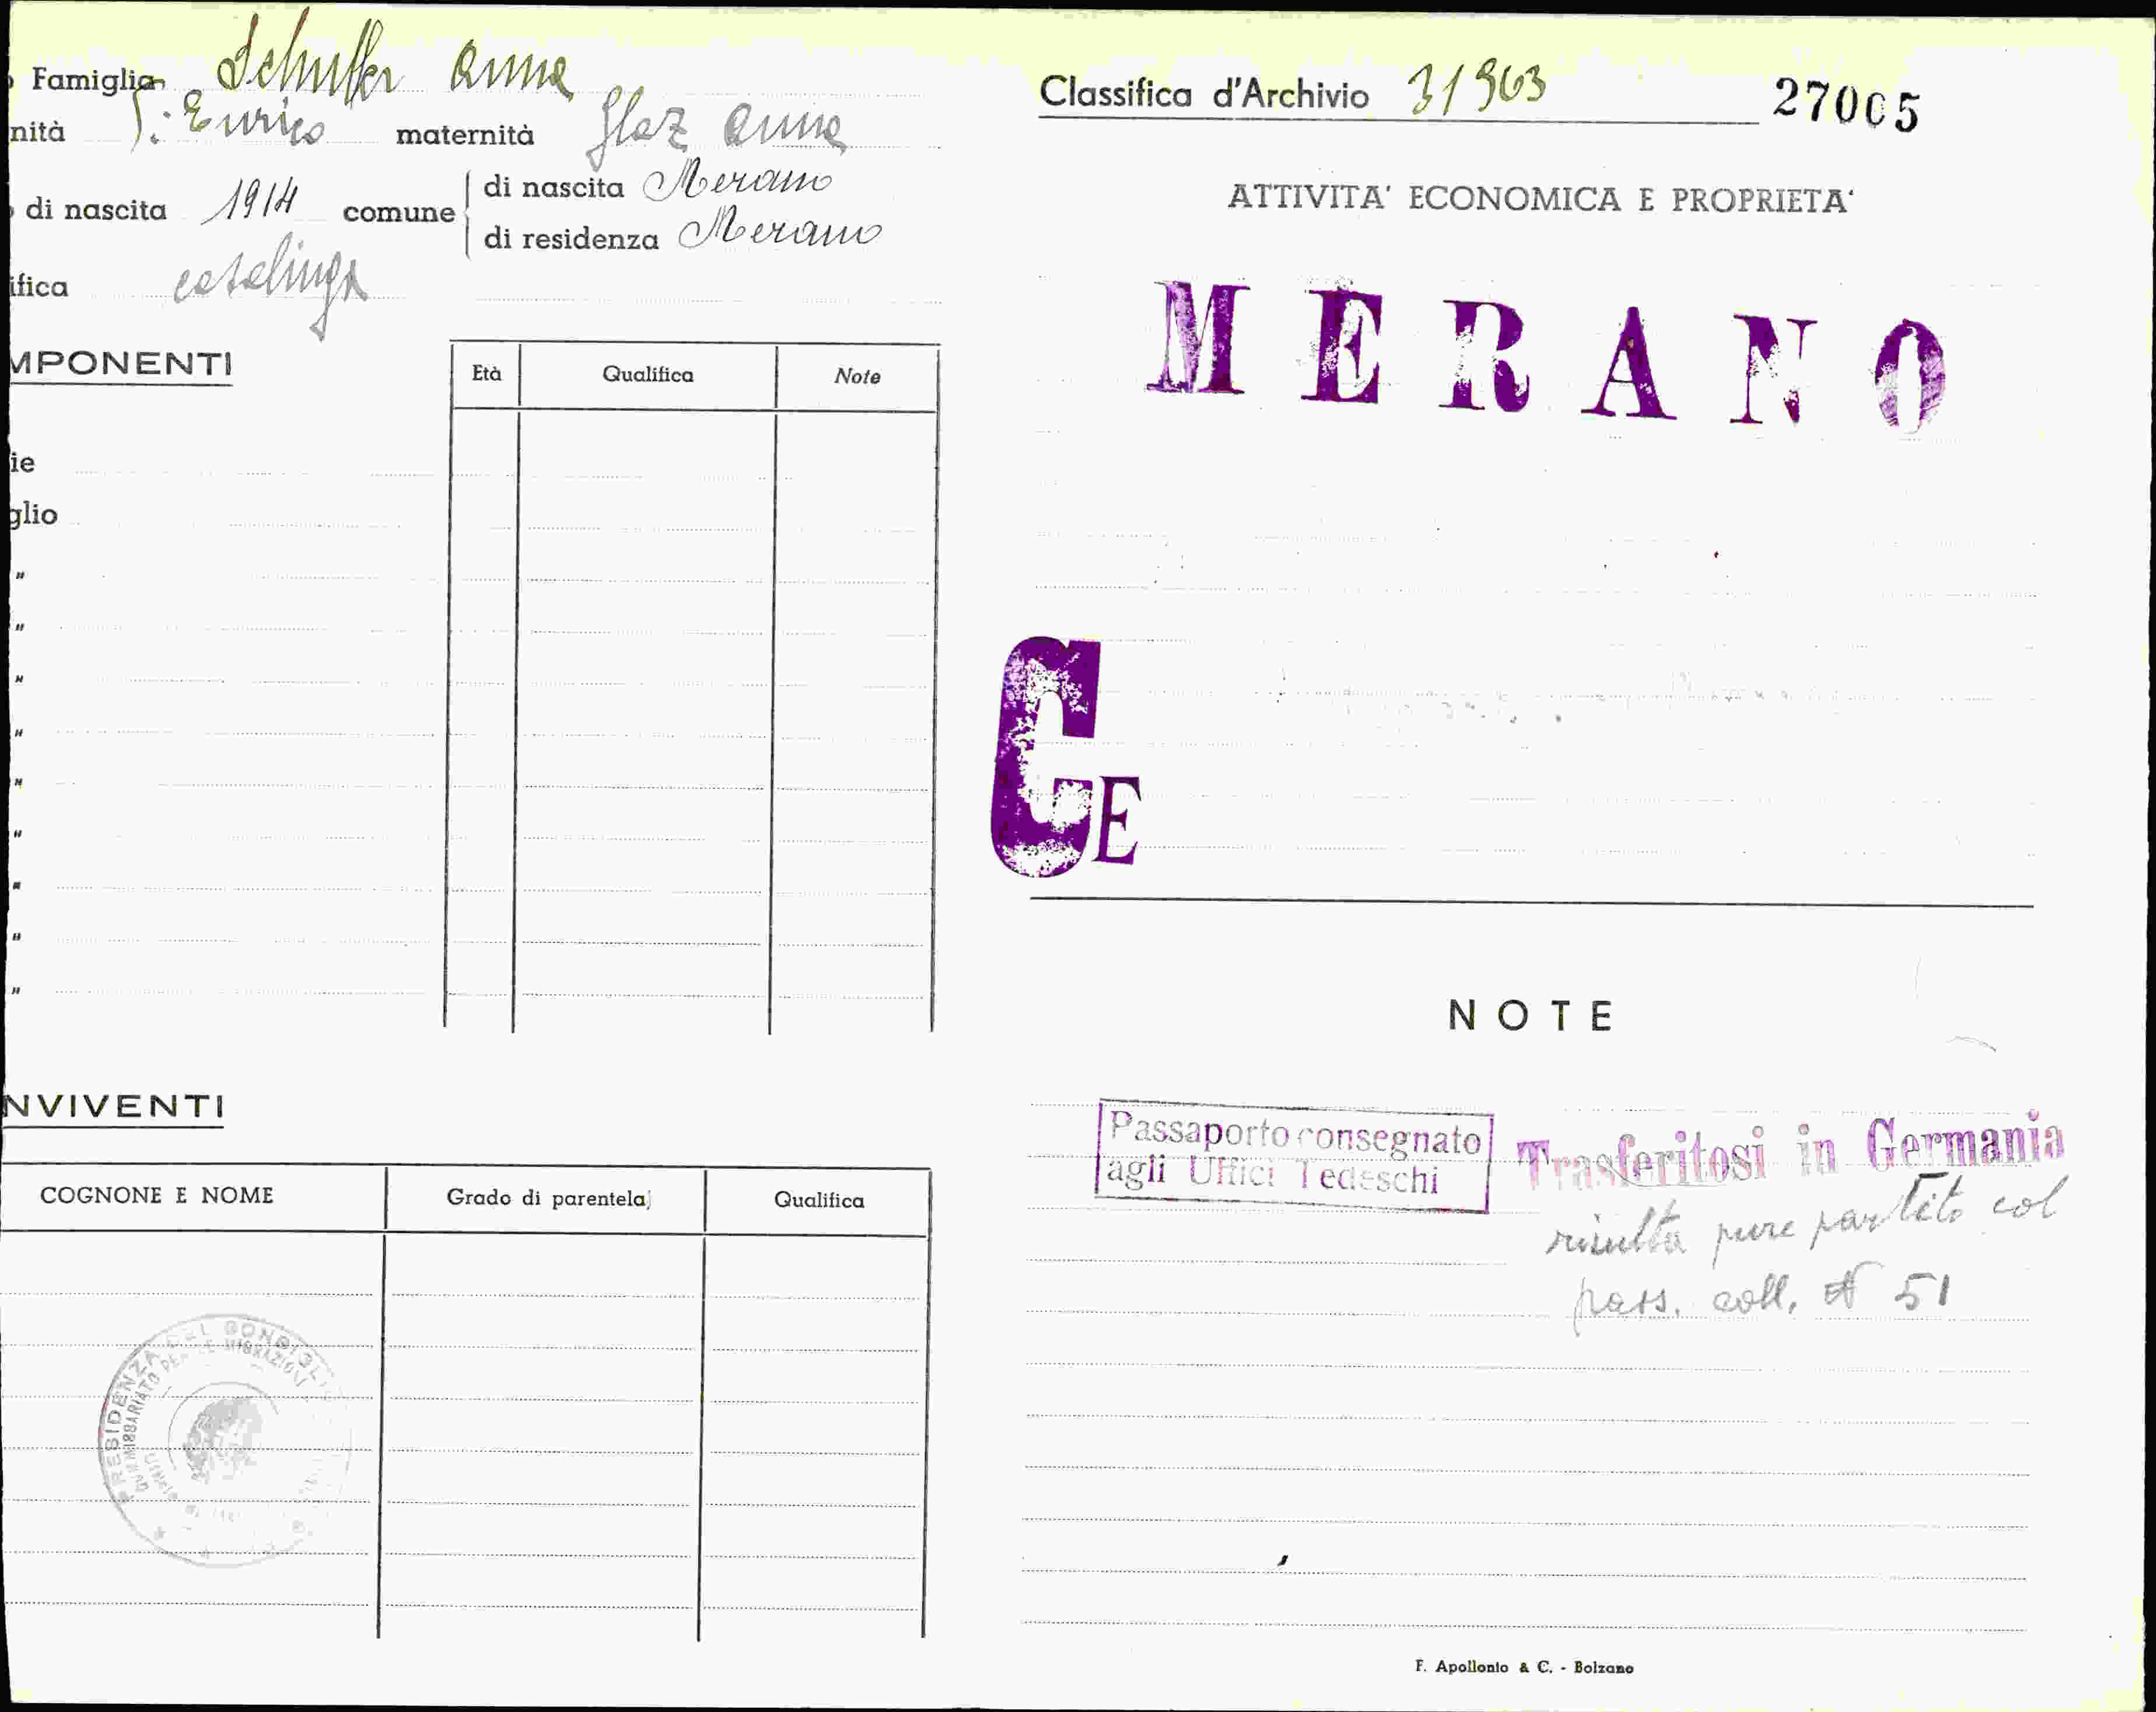 Famiglia Schuller Anna
nità f: Enrico maternità Glaz Anna
di nascita 1914 comune di nascita Merano
di residenza Merano
ifica casalinga
MPONENTI
Età Qualifica Note
ie
glio
"
"
"
"
"
"
"
"
"
NVIVENTI
COGNONE E NOME Grado di parentela Qualifica
PRESIDENZA DEL CONSIGL
COMMISSARIATO PER LE MIGRAZIONI
Classifica d'Archivio 31963 27005
ATTIVITA' ECONOMICA E PROPRIETA'
MERANO
C E
NOTE
Passaporto consegnato
agli Uffici Tedeschi
Trasferitosi in Germania
risulta pure partito col
pass. coll. N 51
F. Apollonio & C. - Bolzano